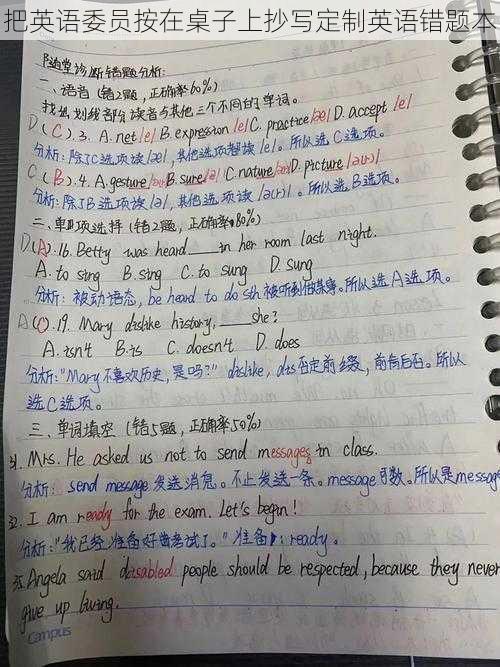 把英语委员按在桌子上抄写定制英语错题本
随堂诊断错题分析:
一、语音(错2题,正确率60%)
找出划线部分读音与其他三个不同的单词。
D(C).3. A.net/e/ B.expression /e/ C.practice/æ/ D.accept /e/
分析:除了C选项读/æ/,其他选项都读/e/。所以选C选项。
C(B).4. A.gesture B.sure C.nature D.picture
分析:除了B选项读/ə/,其他选项读/ə(r)/。所以选B选项。
二、单项选择(错2题,正确率80%)
D(A).16. Betty was heard ___ in her room last night.
A. to sing B. sing C. to sung D. sung
分析:被动语态,be heard to do sth被听到做某事。所以选A选项。
A(C).19. Mary dislike history, ___ she?
A. isn't B. is C. doesn't D. does
分析:"Mary不喜欢历史,是吗?" dislike, dis否定前缀,前肯后否。所以
选C选项。
三、单词填空(错5题,正确率50%)
31. Mrs. He asked us not to send messages in class.
分析:send message发送消息。不止发送一条。message可数。所以是messag
32. I am ready for the exam. Let's begin!
分析:"我已经准备好考试了。"准备:ready。
35. Angela said disabled people should be respected, because they never
give up living.
Campus